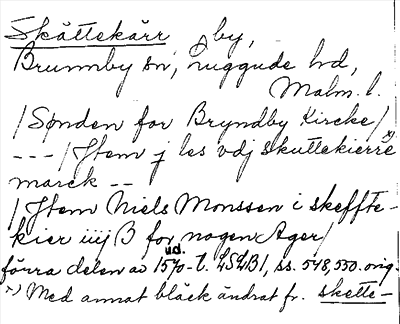 Skättekärr, by,
Brunnby sn, Luggude hd,
Malm. l.
/Sønden for Bryndby Kircke/
---/Jtem j les vdj skuttekierre x)
marck --
/Jtem Niels Monssen i skeffte-
kier iiij B for nogen Ager/
förra delen av 1570-t. LSLB1, ss. 548, 550. orig.
ud.
x) Med annat bläck ändrat fr. skette-